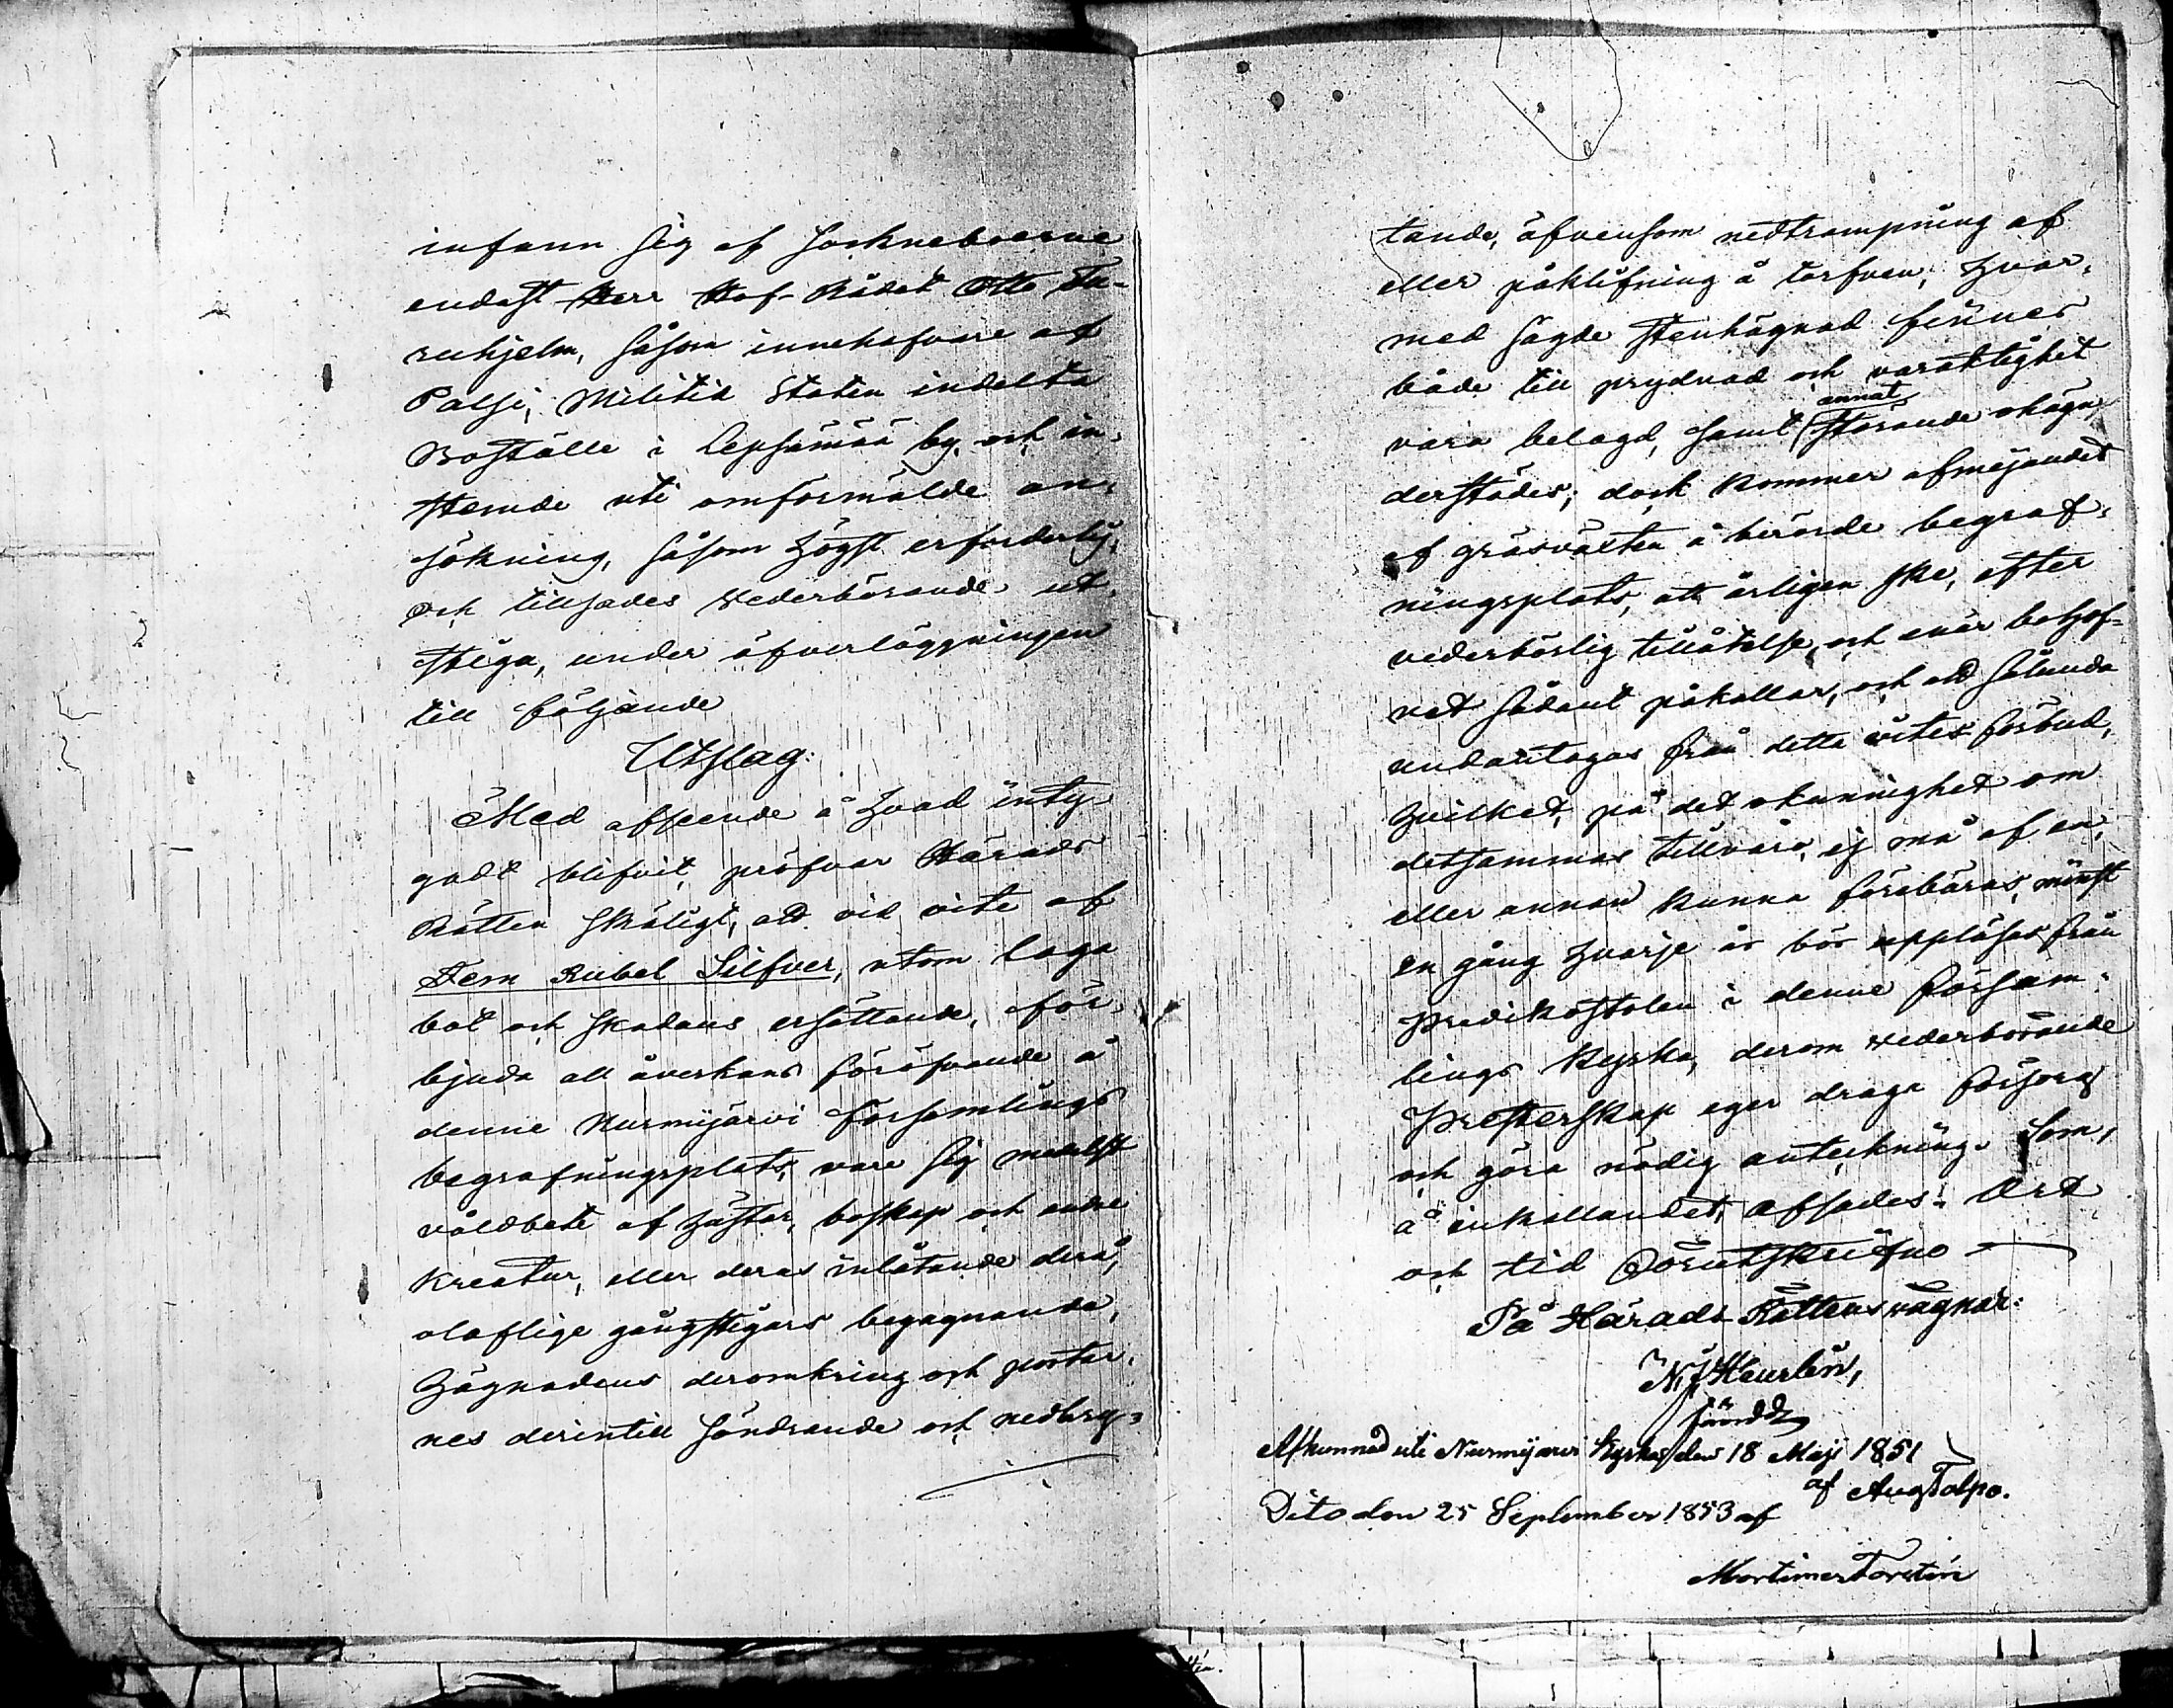 infann sig af Sockneboerne
endast Herr Hof-Rådet Otto Fu-
ruhjelm, såsom innehafvare af
Palsi, Militie Staten indelta
Boställe i Lepsämää by, och in-
stemde uti omförmälde an-
sökning, såsom högst erforderlig,
och tillsades vederbörande ut-
stiga, under öfverläggningen
till följande
Utslag:
Med afseende å hvad inty-
gadt blifvit, pröfvar Härads
Rätten skäligt, att vid vite af
Fem Rubel Silfver, utom laga
bot och skadans ersättande, för-
bjuda all åverkans föröfvande å
denne Nurmijärvi församlings
begrafningsplats, vare sig medelst
våldbete af hästar, boskap och andre
kreatur, eller deras inlåtande derå,
olaflige gångstigars begagnande,
hägnadens deromkring och portar-
nes derintill söndrande och nedbry-
tande, äfvensom nedtrampning af
eller påklifning å torfven, hvar-
med sagde stenhägnad finnes
både till prydnad och varaktighet
annat
vara belagd, samt störande ohägn
derstädes; dock kommer afmejandet
af gräsvälten å berörde begraf-
ningsplats, att årligen ske, efter
vederbörlig tillåtelse, och enär behof-
vet sådant påkallar, och att sålunda
undantagas från detta vites förbud,
hvilket, på det okunnighet om
detsammas tillvaro, ej må af en
eller annan kunna förebäras, minst
en gång hvarje år bör uppläsas från
Predikostolen i denne Försam-
lings Kyrka, derom vederbörande
Presterskap eger draga försorg
och göra nödig anteckning. Som,
å inkallandet, afsades. Ort
och tid Förutskrifne
På Härads Rättens vägnar:
Afkunnad uti Nurmijärvi Kyrka den 18 Maji 1851
af Aug Talpo.
Dito den 25 September 1853 af
Mortimer Forstén